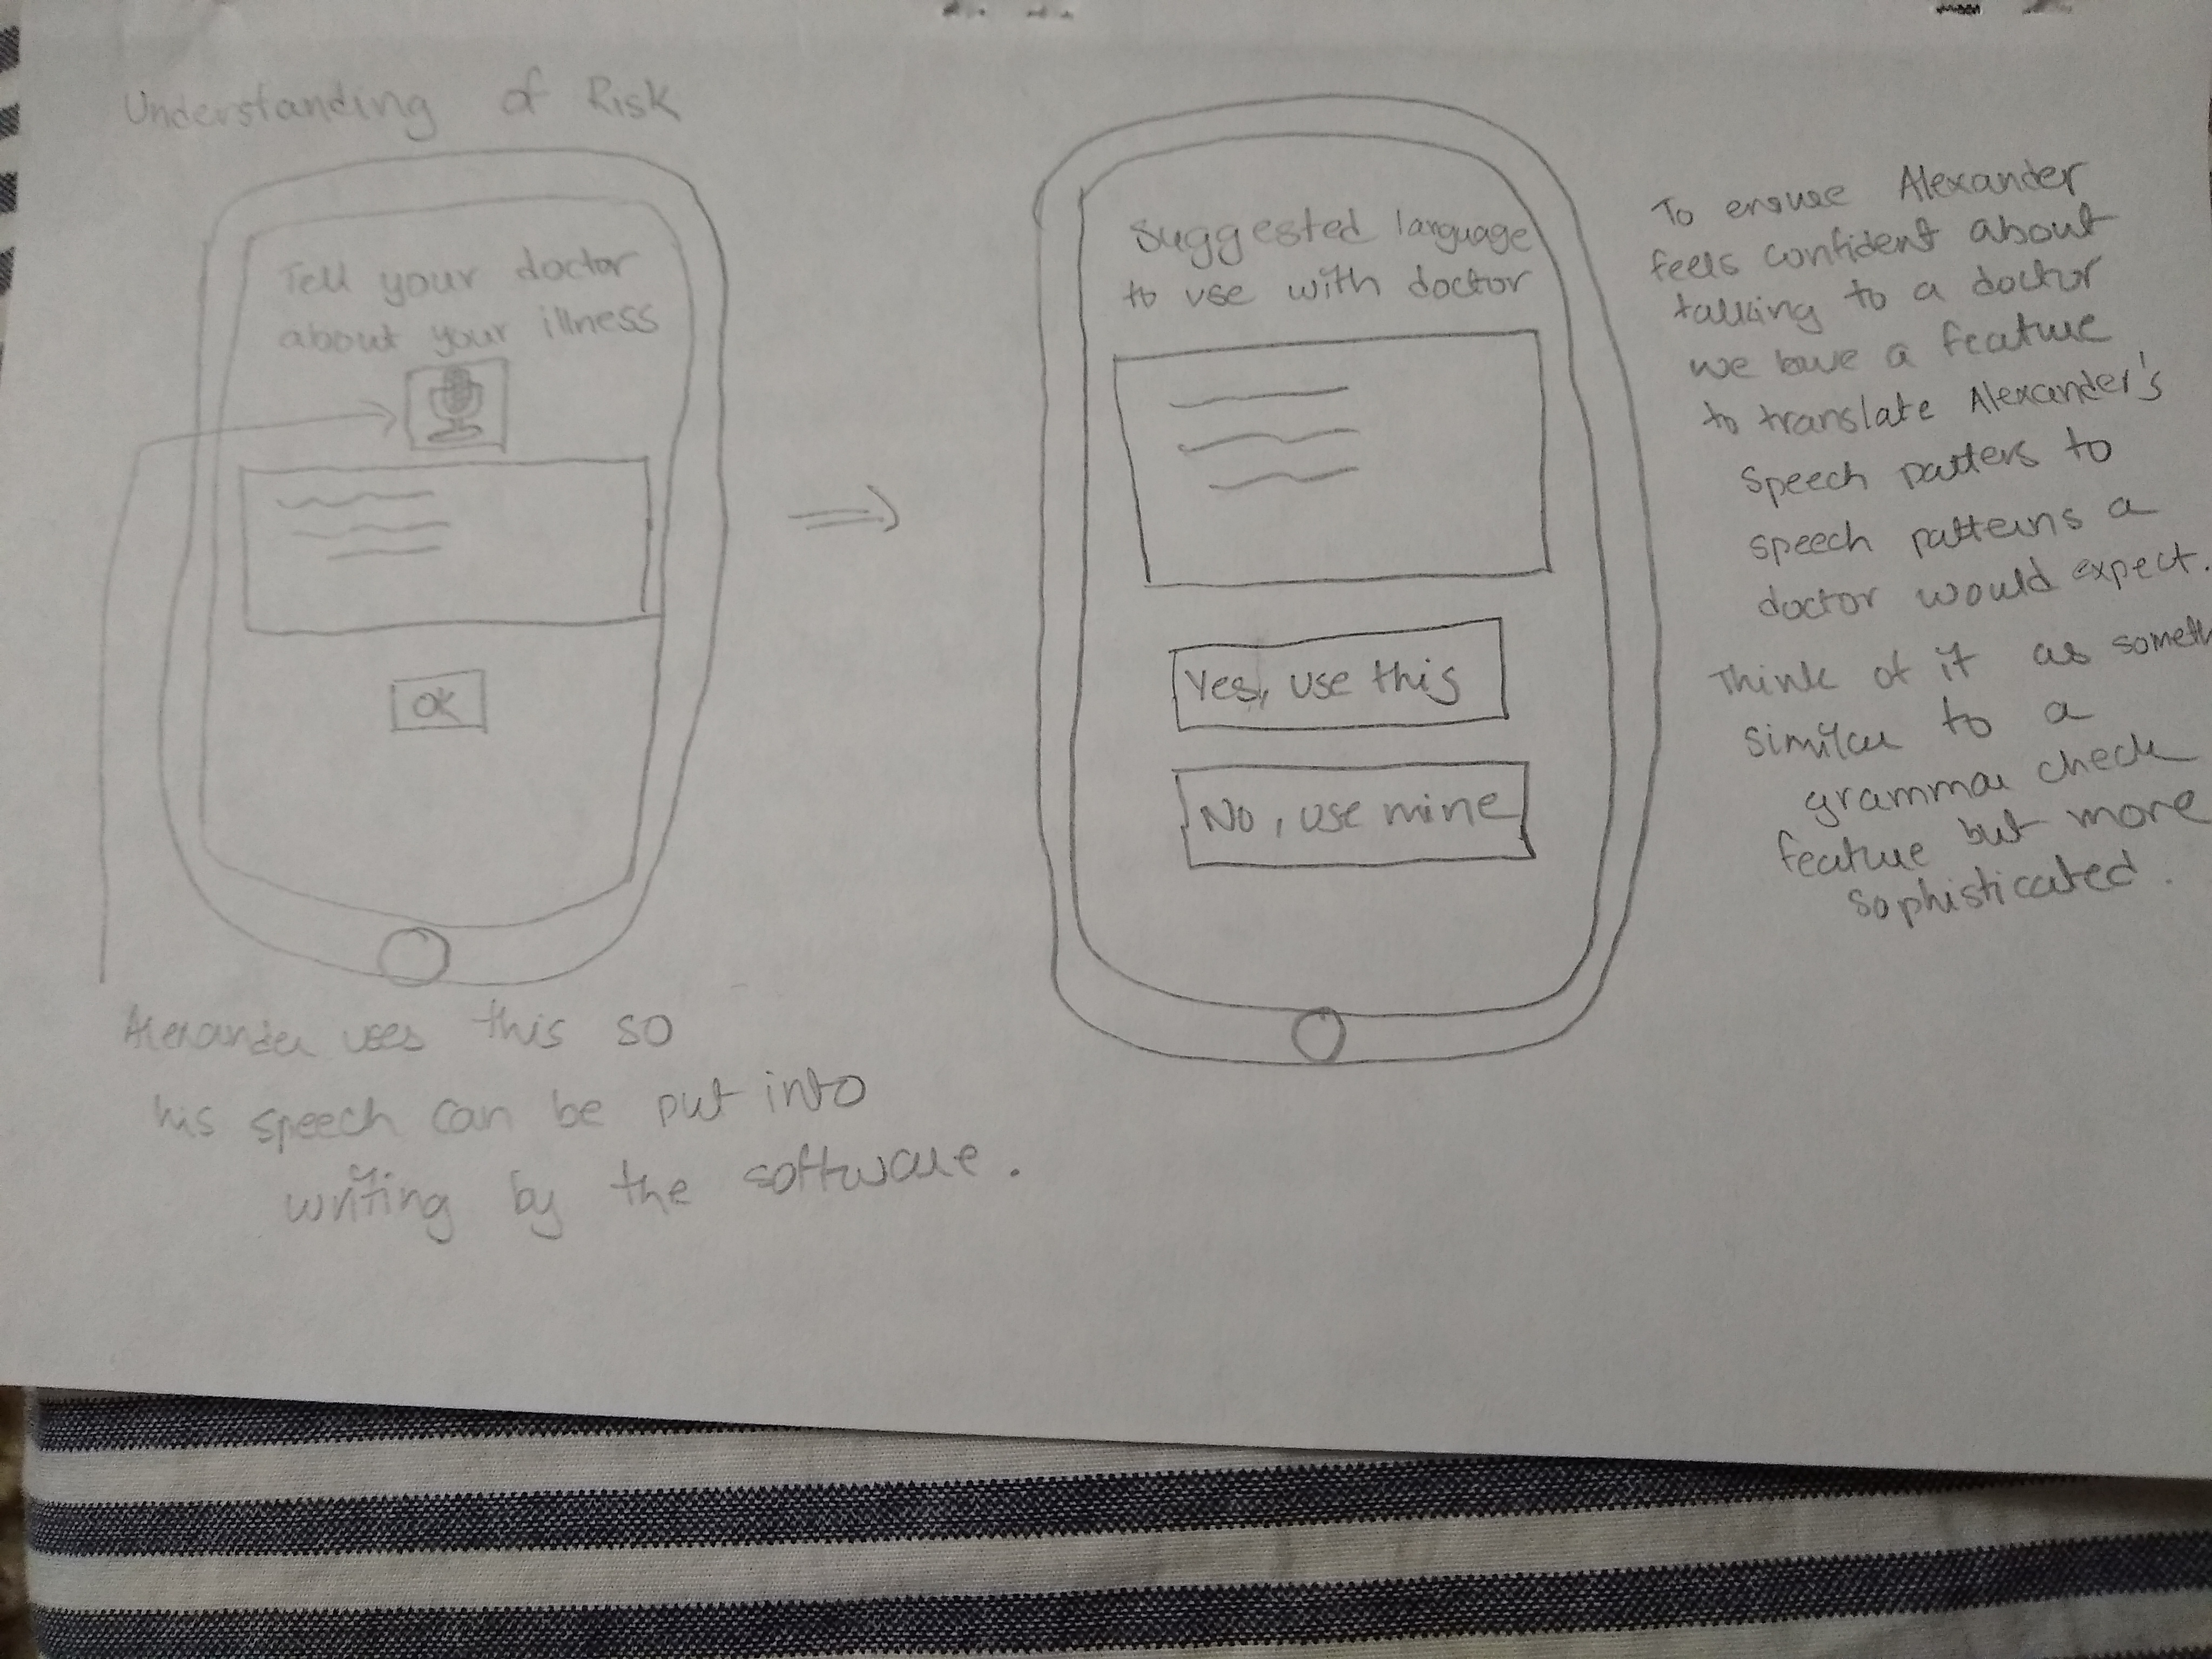 Understanding of Risk
Tell your doctor
about your illness
OK
Alexander uses this so
his speech can be put into
writing by the software.
Suggested language
to use with doctor
Yes, use this
No, use mine
To ensure Alexander
feels confident about
talking to a doctor
we have a feature
to translate Alexander's
speech patters to
speech patterns a
doctor would expect.
Think of it as someth
similar to a
grammar check
feature but more
sophisticated.